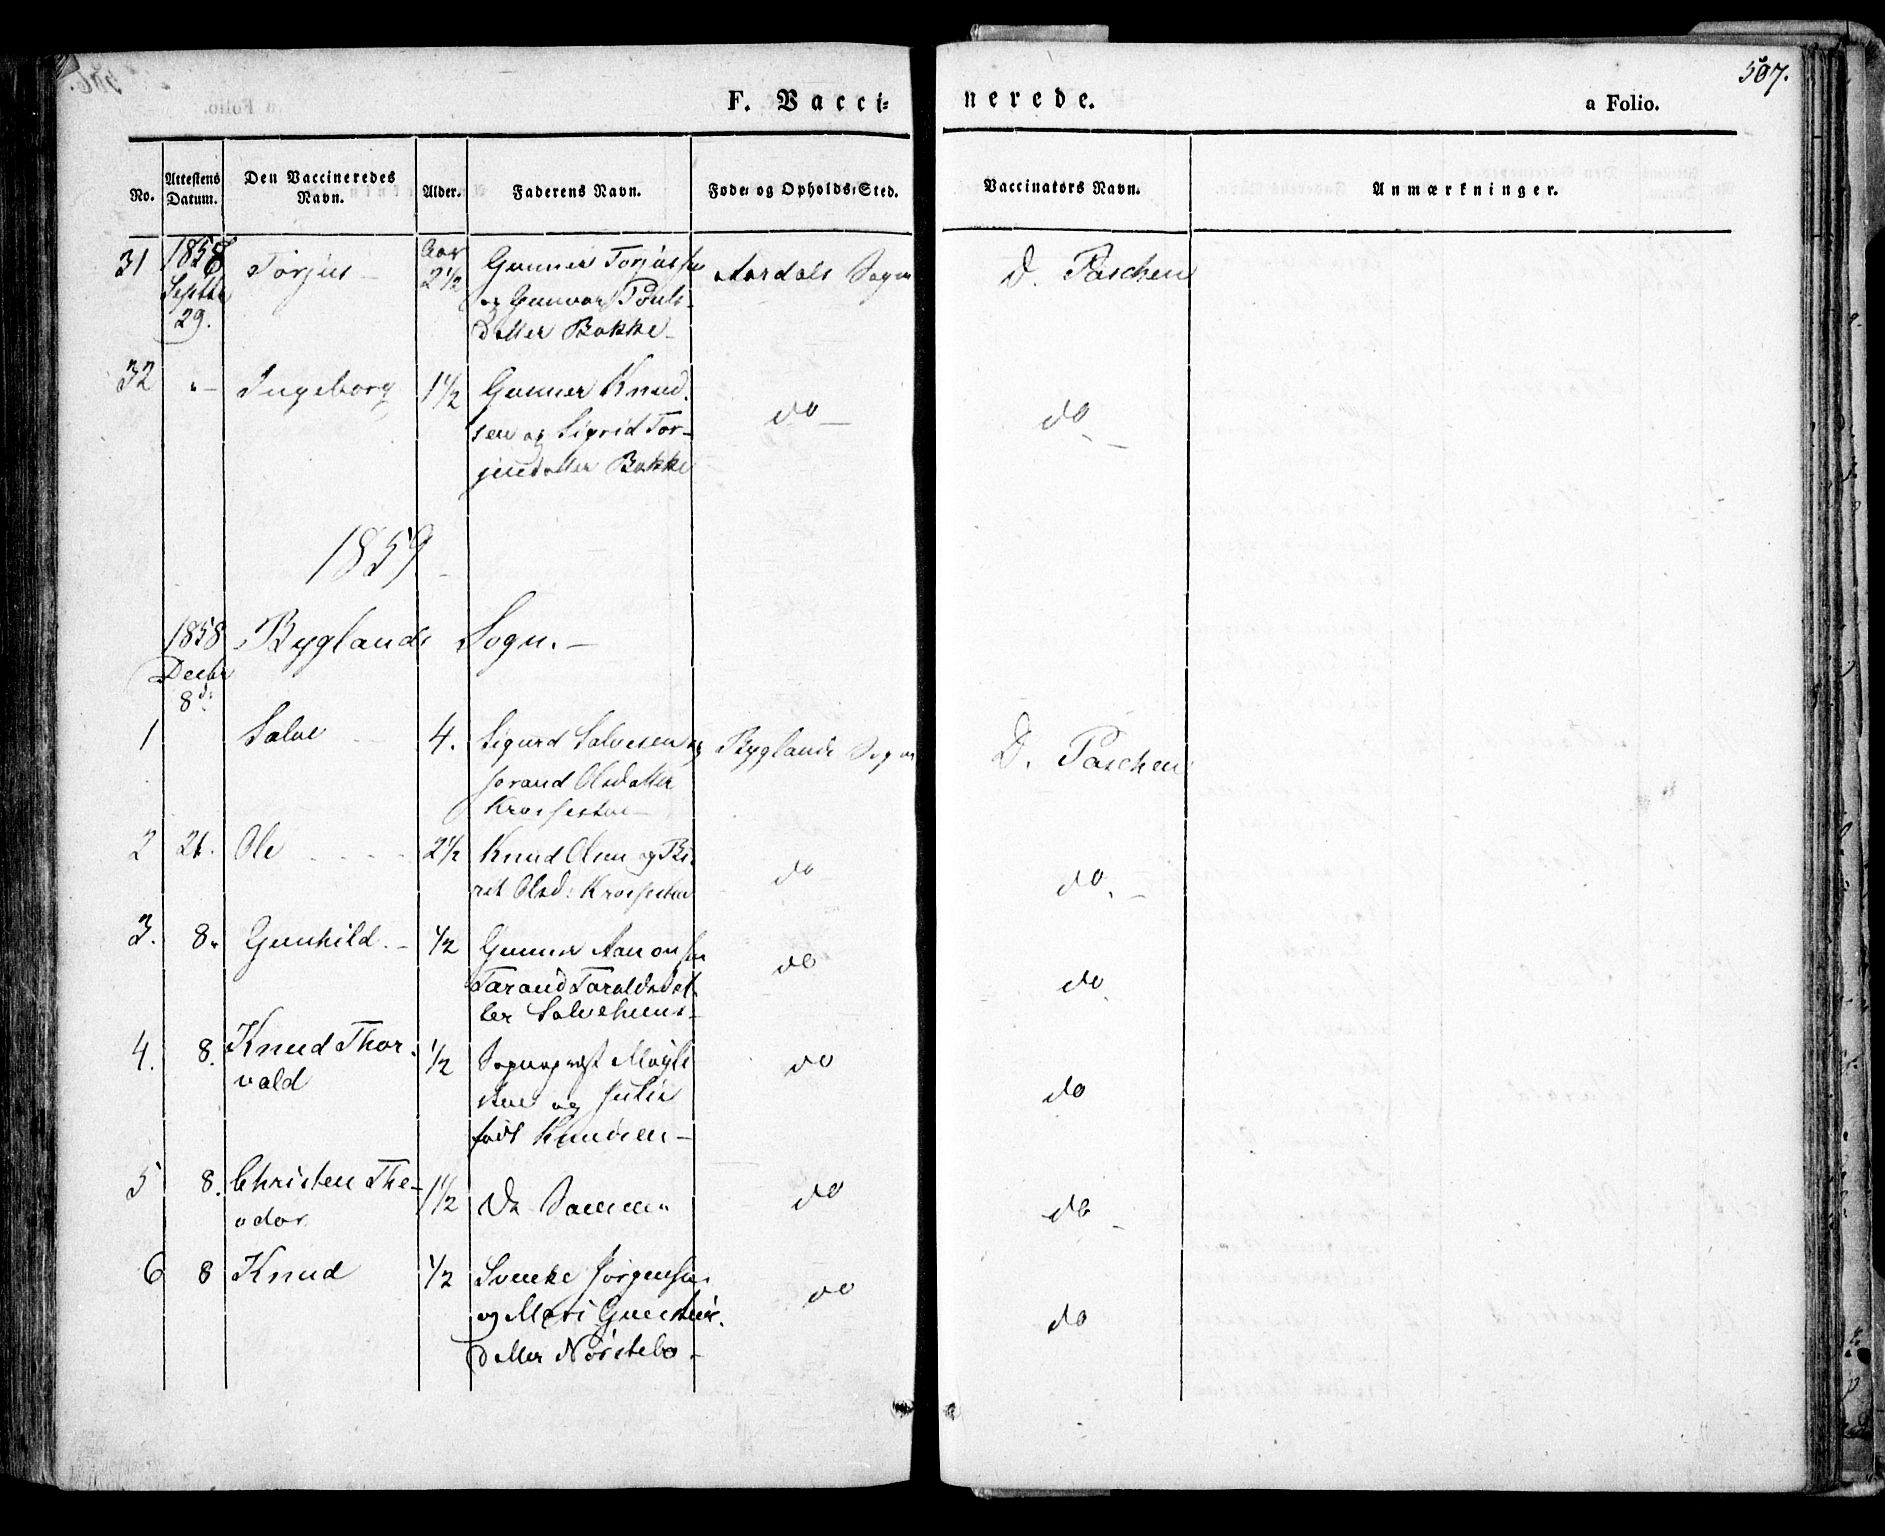 507.
F. Vacci=
nerede.
a Folio.
No.
Attestens Datum.
Den Vaccineredes Navn.
Alder.
Faderens Navn.
Føde= og Opholds=Sted.
Vaccinators Navn.
Anmærkninger.
31 1858 Torjus Aar 2½ Gunner Torjussen Aardals Sogn D. Paschen
Septbr og Gunvor Pouls-
29. datter Bakke
32 "– Ingeborg 1½ Gunner Knud-
sen og Sigrid Tor- do do
jusdatter Bakke
1859
1858 Byglands Sogn.
Decbr
8d:
1 Salve 4. Sigurd Salvesen og Byglands Sogn D. Paschen
Jorand Olsdatter
2 21. Ole 2½ Knud Olsen og Bi-
ret Olsd: do do
3. 8. Gunhild. ½ Gunner Aanonsen do do
Tarand Taraldsdat-
ter
4. 8. Knud Thor- ½ Sogneprest do do
vald og Julie
født Knudsen
5 8. Christen The- 1½ De Samme do do
odor
6 8 Knud ½ Svenke Jørgensen do do
og Mari
datter Nørstebø